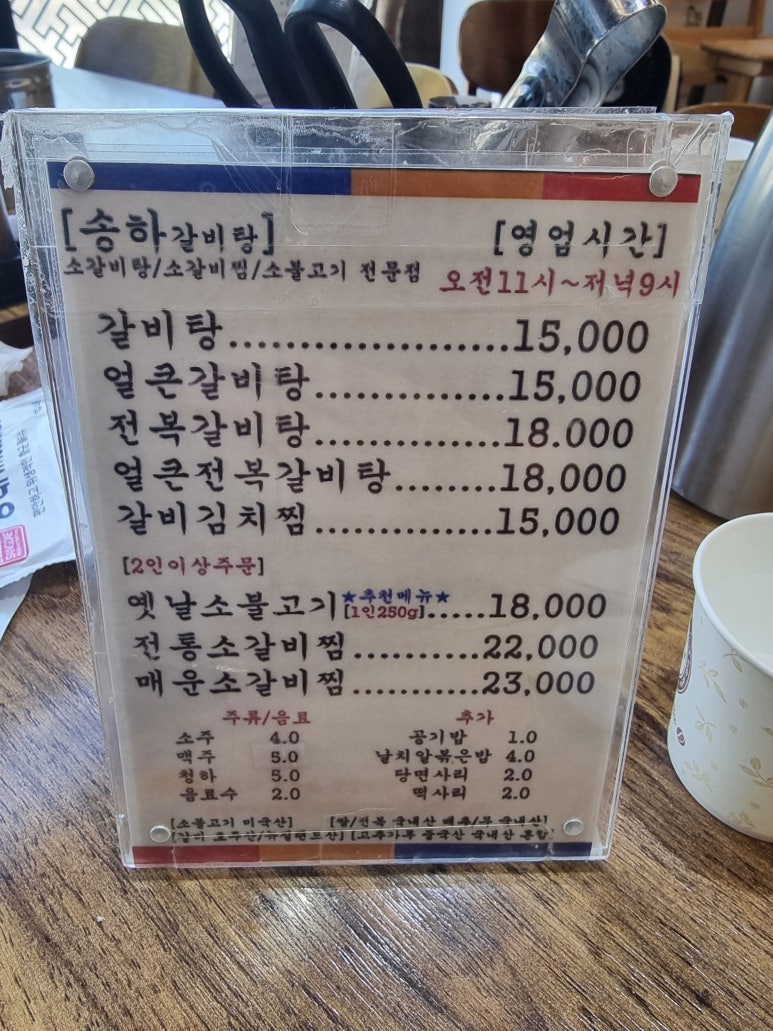 [송하갈비탕]
[영업시간]
소갈비탕/소갈비찜/소불고기 전문점
오전11시~저녁9시
갈비탕....................15,000
얼큰갈비탕..............15,000
전복갈비탕..............18.000
얼큰전복갈비탕........18,000
갈비김치찜...............15,000
[2인이상주문]
옛날소불고기★추천메뉴★[1인250g].....18,000
전통소갈비찜..........22,000
매운소갈비찜..........23,000
주류/음료
소주 4.0
맥주 5.0
청하 5.0
음료수 2.0
추가
공기밥 1.0
날치알볶은밥 4.0
당면사리 2.0
떡사리 2.0
[소불고기 미국산] [쌀/전복 국내산 배추/무 국내산]
[갈비 호주산/뉴질랜드산] [고추가루 중국산 국내산 혼합]